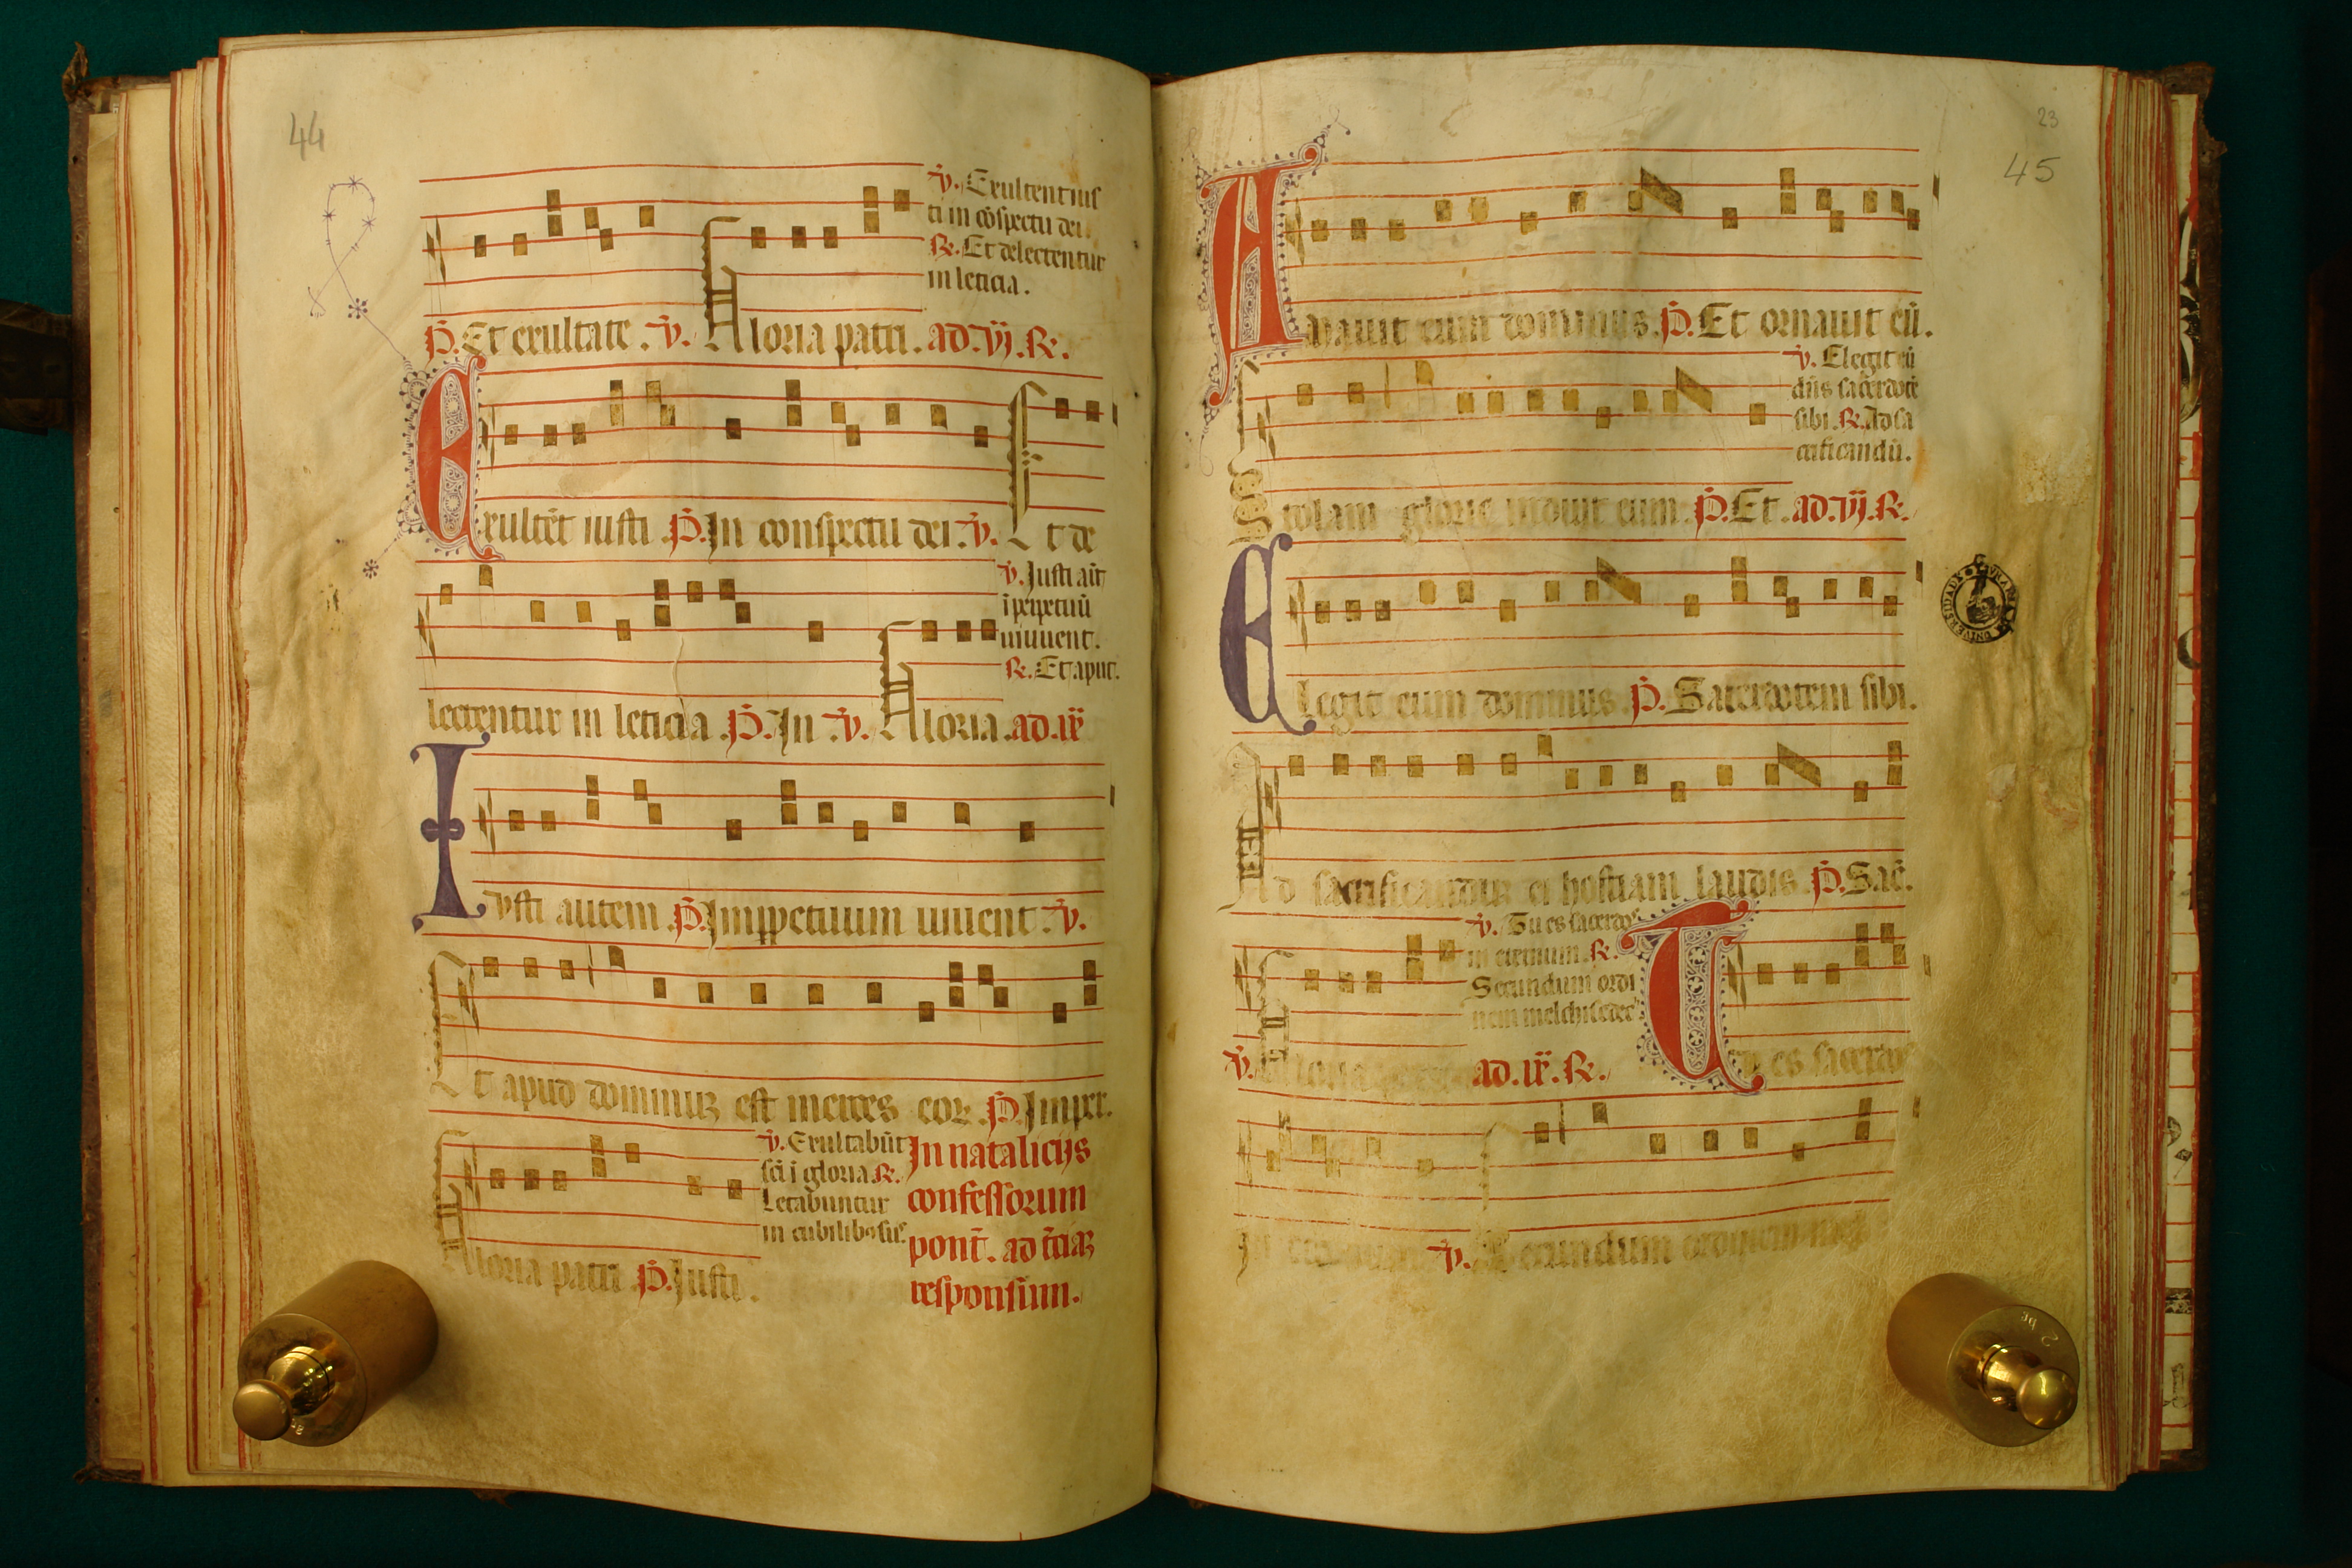 44
℣. Exultent ius
ti in cōspectu dei.
℟. Et delectentur
in leticia.
P̄. Et exultate. ℣. Gloria patri. ad. vj. ℟.
Exultēt iusti P̄. In conspectu dei. ℣. Et de
℣. Justi aūt
ī ꝑpetuū
uiuent.
℟. Et aput.
lectentur in leticia. P̄. In. ℣. Gloria. ad. ix̄
Iusti autem. P̄. Imꝑpetuum uiuent. ℣.
Et apud dominuꝫ est merces eoꝝ. P̄. Imper.
℣. Exultabūt
sc̄i ī gloria. ℟.
Letabuntur
in cubilibꝰ suis
Gloria patri. P̄. Justi.
In nataliciis
confessorum
pont̄. ad t̄ciaꝫ
responsium.
23
45
Amauit eum dominus. P̄. Et ornauit eū.
℣. Elegit eū
dn̄s sac̄erdotē
sibi. ℟. Ad sa
crificandū.
Stolam glorie induit eum. P̄. Et. ad. vj. ℟.
Elegit eum dominus P̄. Sacerdotem sibi.
Ad sacrificanduꝫ ei hostiam laudis. P̄. Sac̄.
℣. Tu es sacerdos
in eternum. ℟.
Secundum ordi
nem melchisedec
℣. Gloria ad. ix̄. ℟. Tu es sacerdos
In eternum ℣. Secundum ordinem mel